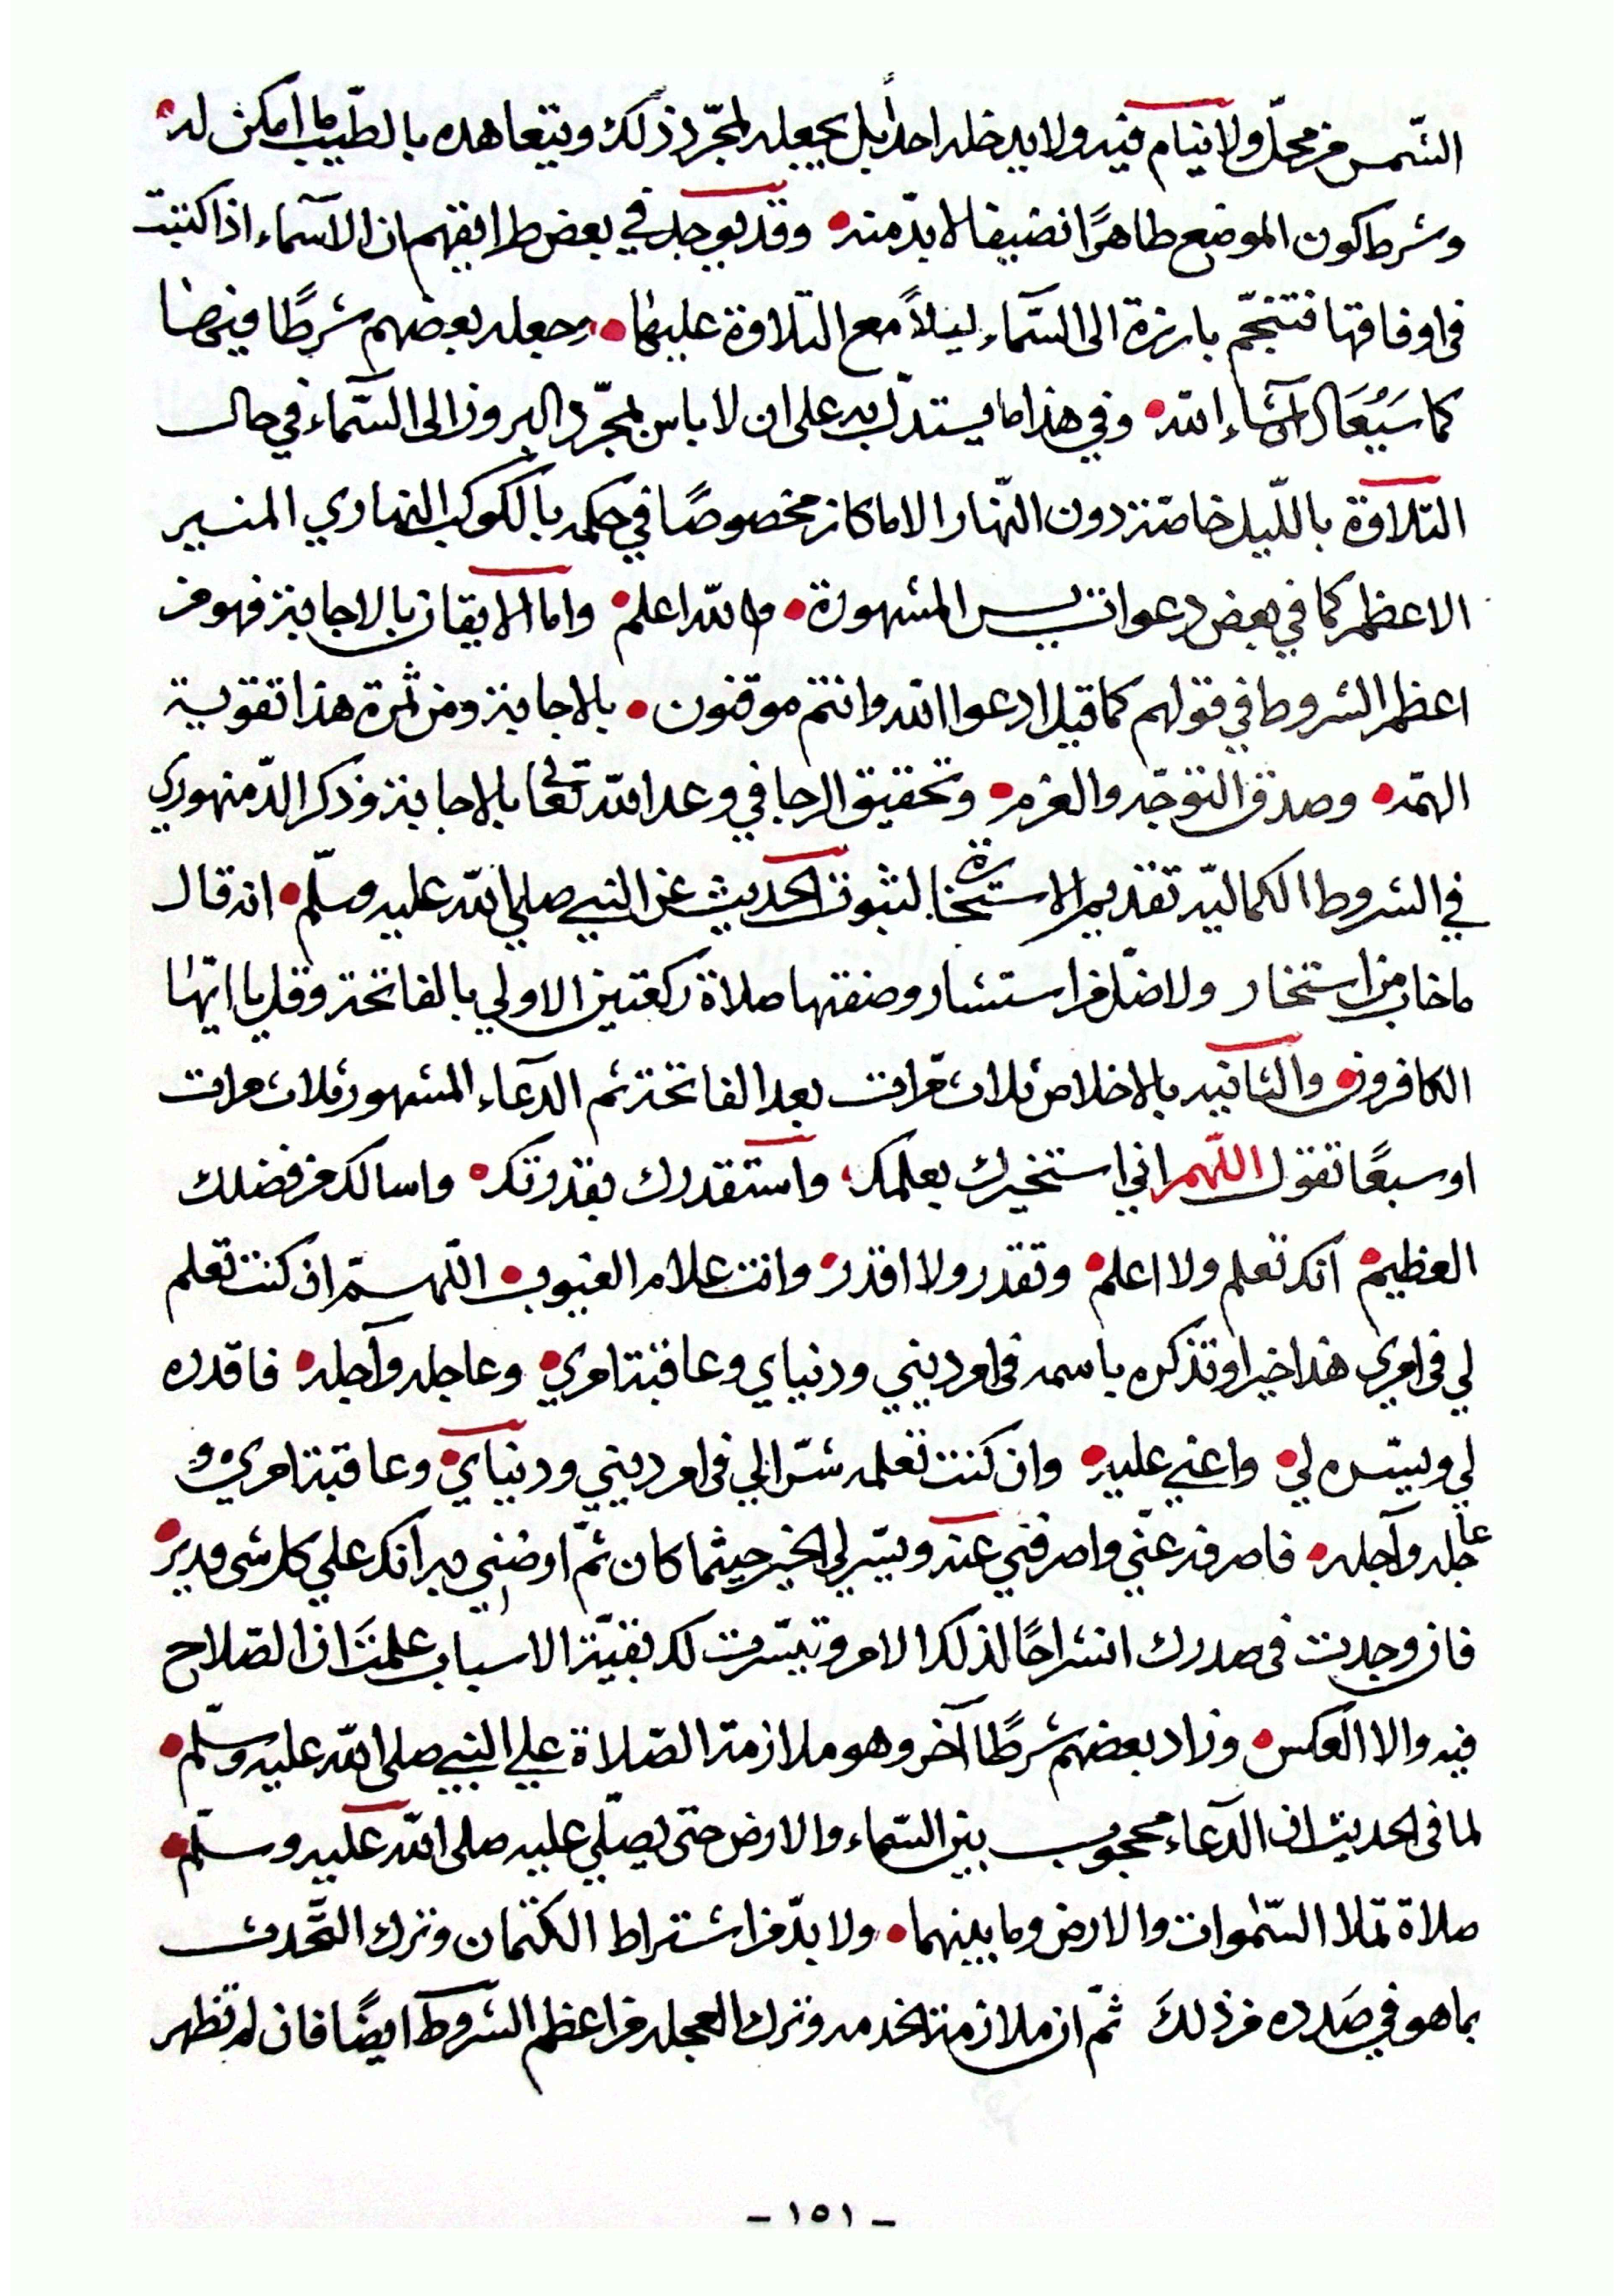 الشمس من محلّ ولا ينام فيه ولا يدخله احداً بل يجعله لمجرّد ذلك ويتعاهده بالطّيب ما امكن له
وشرط كون الموضع طاهرًا نضيفا لا بدّ منه • وقد يوجد في بعض طرائقهم ان الآسماء اذا كتبت
فى اوفاقها فتنجّم بارزة الى السّماء ليلاً مع التلاوة عليها • وجعله بعضهم شرطًا فيها
كما سَيُقَال انشاء الله • وفي هذا ما يستدلّ به على ان لا باس لمجرّد البروز الى السّماء في حال
التلاوة باللّيل خاصة دون النّهار الا ما كان مخصوصًا في حكمه بالكوكب النهاري المنير
الاعظم كما في بعض دعوات يس المشهورة • والله اعلم • واما الايقان بالاجابة فهو من
اعظم الشروط في قولهم كما قيل ادعوا الله وانتم موقنون • بالاجابة ومن ثمرة هذا تقوية
الهمّه • وصدق التوجّه والعزم • وتحقيق الرجا في وعد الله تعالى بالاجابة وذكر الدّمنهوري
في الشروط الكماليّه تقديم الاستخارة لثبوت الحديث عن النبي صلى الله عليه وسلّم • انه قال
ما خاب من استخار ولا ضلّ من استشار وصفتها صلاة ركعتين الاولي بالفاتحة وقل يا ايّها
الكافرون • والثانيه بالاخلاص ثلاث مرّات بعد الفاتحة ثم الدّعاء المشهور ثلاث مرات
او سبعًا تقول اللّهم اني استخيرك بعلمك • واستقدرك بقدرتك • واسالك من فضلك
العظيم • انك تعلم ولا اعلم • وتقدر ولا اقدر • وانت علام الغيوب • اللّهم ان كنت تعلم
لي فى امري هذا خيرا وتذكره باسمه فى امر ديني ودنياي وعاقبة امري • وعاجله وآجله • فاقدره
لي ويسّره لي • واعني عليه • وان كنت تعلمه شرّا لي فى امر ديني ودنياي • وعاقبة امري • و
عاجله وآجله • فاصرفه عنّي واصرفني عنه ويسّر لي الخير حيثما كان ثمّ ارضني به انك علي كل شى قدير •
فان وجدت فى صدرك انشراحًا لذلك الامر وتيسّرت لك بقيّة الاسباب علمتَ ان الصّلاح
فيه والا العكس • وزاد بعضهم شرطًا آخر وهو ملازمة الصّلاة علي النبي صلى الله عليه وسلّم •
لما فى الحديث ان الدّعاء محجوب بين السّماء والارض حتى يصلّي عليه صلى الله عليه وسلّم •
صلاة تملا السّموات والارض وما بينهما • ولا بدّ من اشتراط الكتمان وترك التّحدث
بما هو في صَدده من ذلكَ ثمّ ان ملازمة الخدمه وترك العجله من اعظم الشروط ايضًا فان لم تظهر
- ١٥١ -